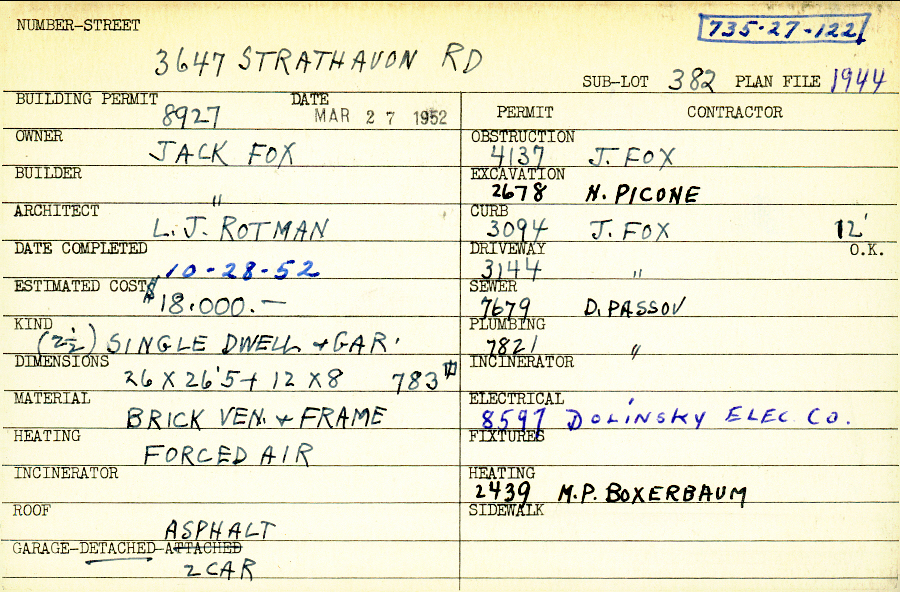 NUMBER-STREET
735-27-122
3647 STRATHAVON RD
SUB-LOT 382 PLAN FILE 1944
BUILDING PERMIT DATE
8927 MAR 27 1952
PERMIT CONTRACTOR
OWNER
JACK FOX
OBSTRUCTION
4137 J. FOX
BUILDER
"
EXCAVATION
2678 N. PICONE
ARCHITECT
L.J. ROTMAN
CURB
3094 J. FOX 12'
DATE COMPLETED
10-28-52
DRIVEWAY O.K.
3144 "
ESTIMATED COST
$18.000.—
SEWER
7679 D. PASSOV
KIND
(2½) SINGLE DWELL + GAR.
PLUMBING
7821 "
DIMENSIONS
26 X 26'5 + 12 X 8 783
INCINERATOR
MATERIAL
BRICK VEN. + FRAME
ELECTRICAL
8597 DOLINSKY ELEC. CO.
HEATING
FORCED AIR
FIXTURES
INCINERATOR
HEATING
2439 M.P. BOXERBAUM
ROOF
ASPHALT
SIDEWALK
GARAGE-DETACHED-ATTACHED
2 CAR